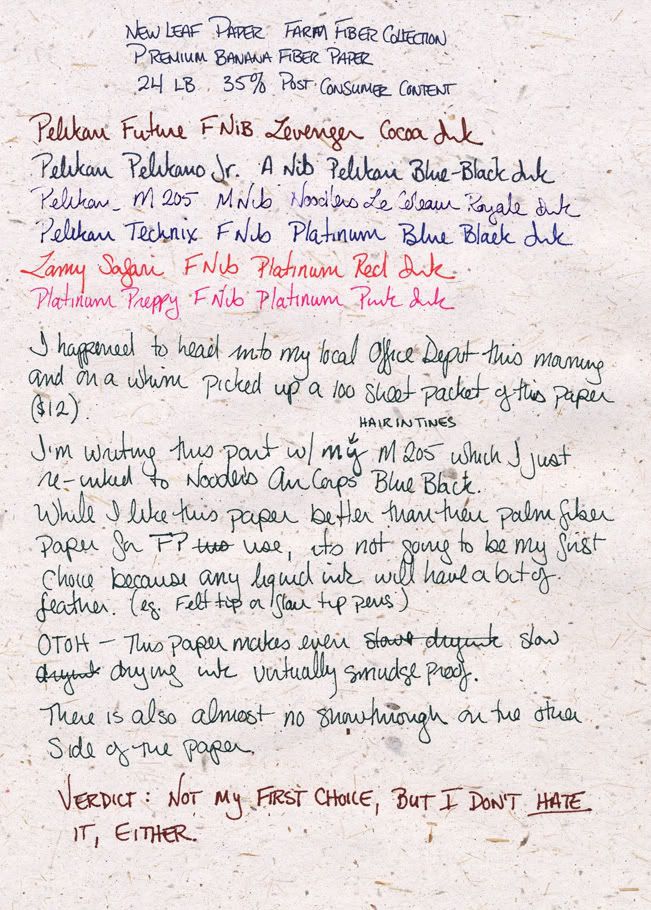 NEW LEAF PAPER FARM FIBER COLLECTION
PREMIUM BANANA FIBER PAPER
24 LB 35% POST CONSUMER CONTENT
Pelikan Future F NIB Levenger Cocoa Ink
Pelikan Pelikano Jr. A Nib Pelikan Blue-Black Ink
Pelikan M 205 M Nib Noodlers La Couleur Royale Ink
Pelikan Technix F Nib Platinum Blue Black Ink
Lamy Safari F Nib Platinum Red Ink
Platinum Preppy F Nib Platinum Pink Ink
I happened to head into my local Office Depot this morning
and on a whim picked up a 100 sheet packet of this paper
($12)
HAIR IN TINES
I'm writing this part w/ my M 205 which I just
re-inked to Noodlers Air Corps Blue Black.
While I like this paper better than their palm fiber
paper for FP use, its not going to be my first
choice because any liquid ink will have a bit of
feather. (eg. Felt tip or fiber tip pens)
OTOH - This paper makes even slow
drying ink virtually smudge proof.
There is also almost no showthrough on the other
side of the paper.
VERDICT: NOT MY FIRST CHOICE, BUT I DON'T HATE
IT, EITHER.